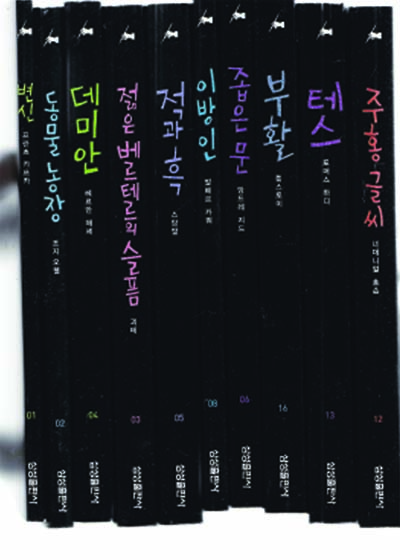 변신
프란츠 카프카
01
삼성출판사
동물농장
조지 오웰
02
삼성출판사
데미안
헤르만 헤세
04
삼성출판사
젊은 베르테르의 슬픔
괴테
03
삼성출판사
적과 흑
스탕달
05
삼성출판사
이방인
알베르 카뮈
08
삼성출판사
좁은 문
앙드레 지드
06
삼성출판사
부활
톨스토이
16
삼성출판사
테스
토머스 하디
13
삼성출판사
주홍 글씨
너대니얼 호손
12
삼성출판사